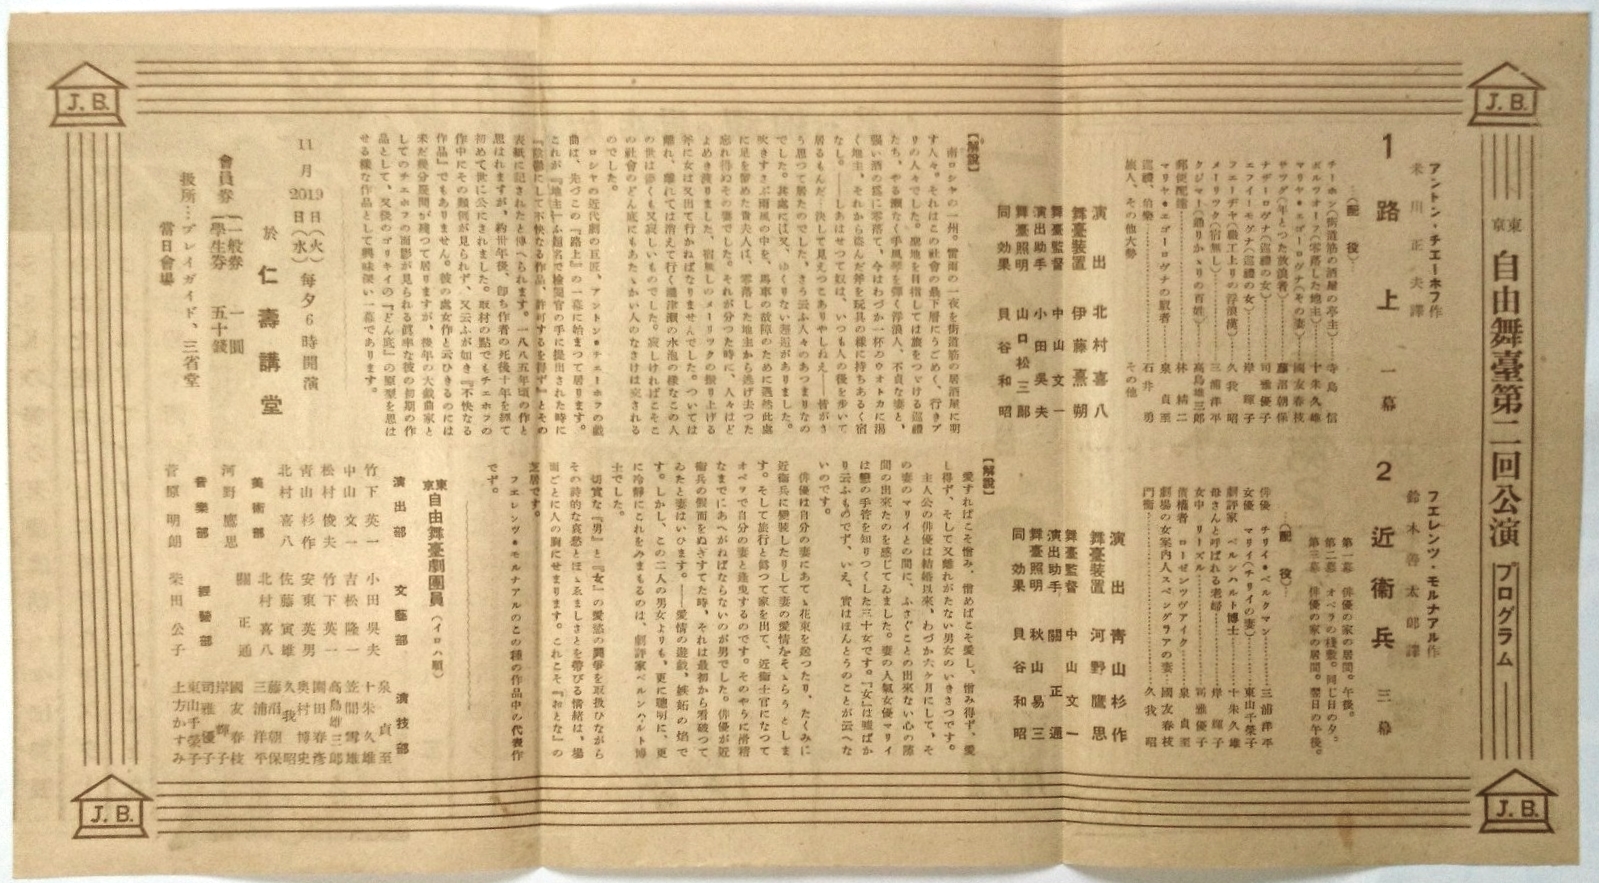 J. B.
J. B.
東京 自由舞臺第二回公演 プログラム
1 路上 一幕
アントン・チエーホフ作
米川正夫譯
(配役)
チーホン(街道筋の酒屋の亭主) 寺島 信
ボルツオーフ(零落した地主) 十朱久雄
マリヤ・エゴーロヴナ(その妻) 國友春枝
サワワ(年とつた放浪者) 藤沼朝保
ナザーロヴナ(巡禮の女) 司雅優子
エフイーモヴナ(巡禮の女) 岸 輝子
フエーヂヤ(職工上りの浮浪漢) 久我 昭
メーリツク(宿無し) 三浦洋平
クジマー(通りかゝりの百姓) 高島雄三郎
郵便配達 林 緒二
マリヤ・エゴーロヴナの馭者 泉 貞至
巡禮、伯樂 石井 勇
旅人、その他大勢 その他
演出 北村喜八
舞臺裝置 伊藤熹朔
舞臺監督 中山文一
演出助手 小田吳夫
舞臺照明 山口松三郎
同 効果 貝谷和昭
【解說】
南ロシヤの一州。雷雨の一夜を街道筋の居酒屋に明
す人々。それはこの社會の最下層にうごめく、行きブ
りの人々でした。聖地を目指しては旅をつゞける巡禮
たち、やる瀨なく手風琴を彈く浮浪人、不貞な妻と、
强い酒の爲に零落て、今はわづか一杯のウオトカに渴
く地主、それから盜んだ斧を玩具の樣に持ちあるく宿
なし。――しあはせつて奴は、いつも人の後を步いて
居るもんだ・決して見えつこありやしねえ――皆がさ
う思つて居たのでした。さう云ふ人々のあつまりなの
でした。其處には又、ゆくりない邂逅がありました。
吹きすさぶ雨風の中を、馬車の故障のために偶然此處
に足を留めた貴夫人は、零落した地主から逃げ去つた
忘れ得ぬその妻でした。それが分つた時に、人々はど
よめき渡りました。宿無しのメーリツクの振り上げる
斧に女は又出て行かねばなりませんでした。ついては
離れ、離れては消えて行く灘津瀨の水泡の樣なこの人
の世は儚くも又寂しいものでした。寂しければこそこ
の社會のどん底にもあたゝかい人のなさけは索される
のでした。
ロシヤの近代劇の巨匠、アントン・チエーホフの戲
曲は、先づこの『路上』の一幕に始まつて居ります。
これが『地主』てふ題名で檢閱官の手に提出された時に
『陰鬱にして不快なる作品、許可するを得ず』とその
表紙に記されたと傳へられます。一八八五年頃の作と
思はれますが、約卅年後、卽ち作者の死後十年を經て
初めて世に公にされました。取材の點でもチエホフの
作中にその類例が見られず、又云ふが如き『不快なる
作品』でもありません。彼の處女作と云ひきるのには
未だ幾分疑問が殘つて居りますが、後年の大戲曲家と
してのチエホフの面影が見られる眞率な彼の初期の作
品として、又後のゴリキイの『どん底』の原型を思は
せる樣な作品として興味深い一幕であります。
11月 20日(水) 19日(火) 每夕6時開演
於 仁壽講堂
會員券 {一般券 一圓
{學生券 五十錢
扱所…プレイガイド、三省堂
當日會場
2 近衞兵 三幕
フエレンツ・モルナアル作
鈴木善太郎譯
第一幕 俳優の家の居間。午後。
第二幕 オペラの棧敷。同じ日の夕。
第三幕 俳優の家の居間。翌日の午後。
(配役)
俳優 チリイ・ベルクマン 三浦洋平
女優 マリイ(チリイの妻) 東山千榮子
劇評家 ベルンハルト博士 十朱久雄
母さんと呼ばれる老婦 岸 輝子
女中 リーズル 司雅優子
債權者 ローゼンツヴアイク 泉 貞至
劇場の女案內人スペングラアの妻 國友春枝
門衞 久我 昭
演出 青山杉作
舞臺裝置 河野鷹思
舞臺監督 中山文一
演出助手 關 正通
舞臺照明 秋山易三
同 効果 貝谷和昭
【解說】
愛すればこそ憎み、憎めばこそ愛し、憎み得ず、愛
し得ず、そして又離れがたない男女のいきさつです。
主人公の俳優は結婚以來、わづか六ヶ月にして、そ
の妻のマリイとの間に、ふさぐことの出來ない心の隙
間の出來たのを感じてゐました。妻の人氣女優マリイ
は戀の手答を知りつくした三十女です。『女』は嘘ばか
り云ふものです、いえ、實はほんとうのことが云へな
いのです。
俳優は自分の妻にあてゝ花束を送つたり、たくみに
近衞兵に變裝したりして妻の愛情をそゝらうとしま
す。そして旅行と僞つて家を出て、近衞士官になつて
オペラで自分の妻と逢曳するのです。そのやうに滑稽
なまでにあへがねばならないのが男でした。俳優が近
衞兵の假面をぬぎすてた時、それは最初から看破つて
ゐたと妻はいひます。――愛情の遊戲、嫉妬の焔で
す。しかし、この二人の男女よりも、更に聰明に、更
に冷靜にこれをみまもるのは、劇評家ベルンハルト博
士でした。
切實な『男』と『女』の愛慾の鬪爭を取扱ひながら
その詩的な哀愁とほゝゑましさとを帶びる情緖は、場
面ごとに人の胸にせまります。これこそ『おとな』の
芝居です。
フエレンツ・モルナアルのこの種の作品中の代表作
です。
東京 自由舞臺劇團員(イロハ順)
演出部
竹下英一
中山文一
松村俊夫
青山杉作
北村喜八
美術部
河野鷹思
音樂部
菅原明朗
文藝部
小田吳夫
吉松隆一
竹下英一
安東英男
佐藤寅雄
北村喜八
關 正通
經營部
柴田公子
演技部
泉 貞至
十朱久雄
笠間雪雄
高島雄三郎
園田春彥
奧村博史
久我 昭
藤沼朝保
三浦洋平
國友春枝
岸 輝子
司雅優子
東山千榮子
土方かすみ
J. B.
J. B.